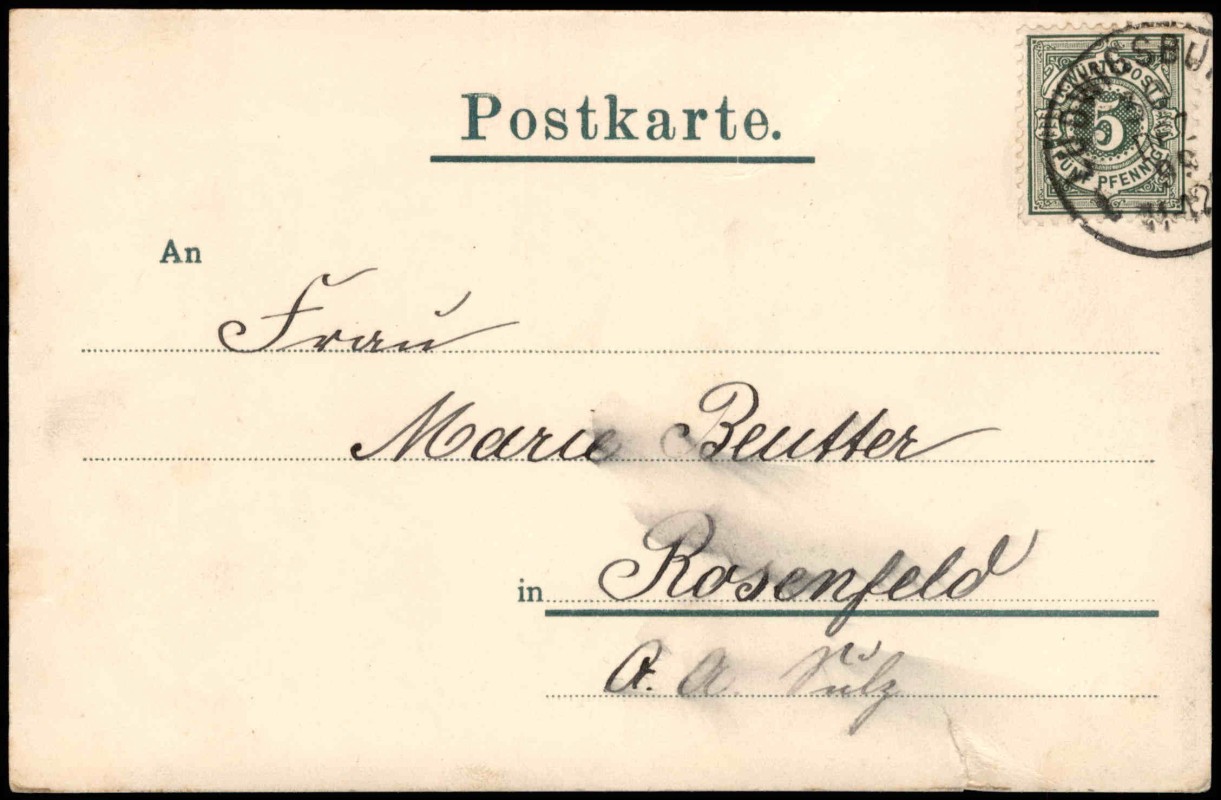 Postkarte.
FÜNF PFENNIG
5
An
Frau
Marie Beutter
in Rosenfeld
O. A. Sulz